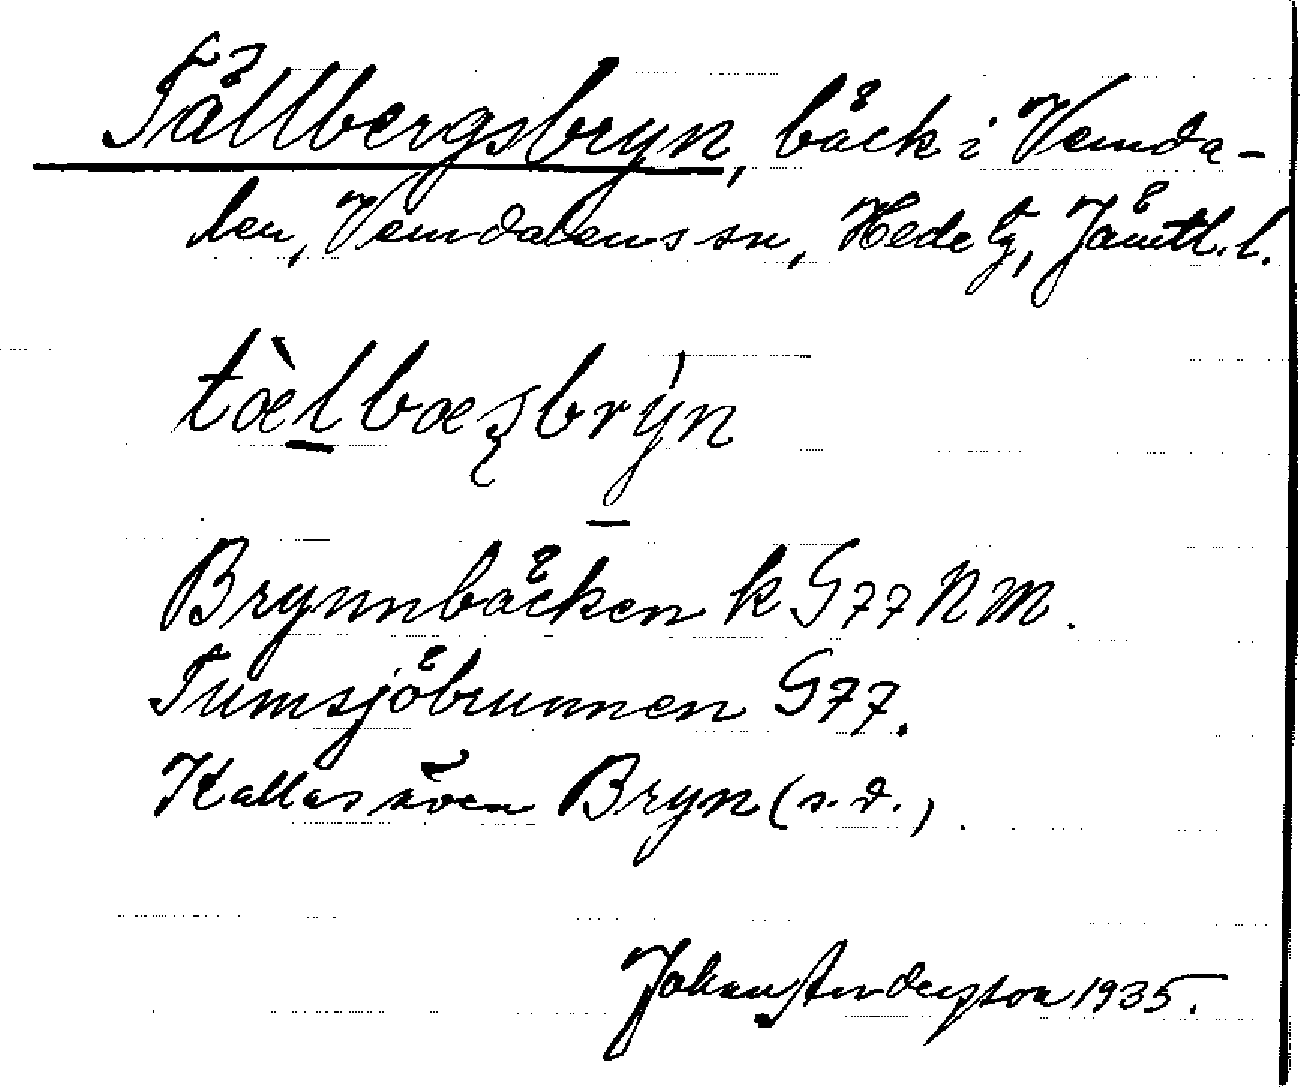 Tällbergsbryn, bäck i Vemda-
len, Vemdalens sn, Hede tg, Jämtl. l.
tæ̀lbæʂbrýn
Brynnbäcken k G77 NM.
Tumsjöbrunnen G77.
Kallas även Bryn (s. d.)
Johan Anderson 1935.